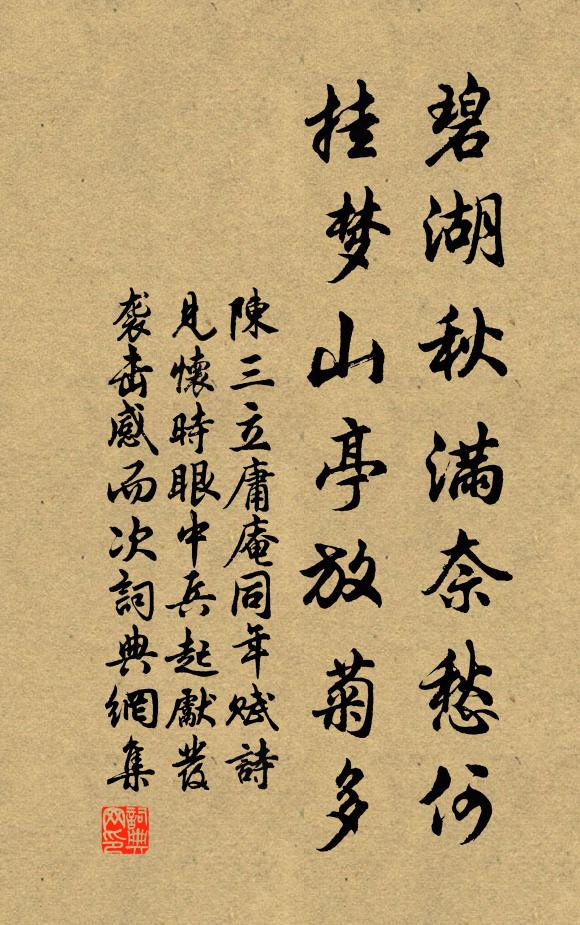 碧湖秋满奈愁何
挂梦山亭放菊多
陳三立庸庵同年赋詩
見懷時眼中兵起獻發
襲击感而次詞典網集
詞典
网印